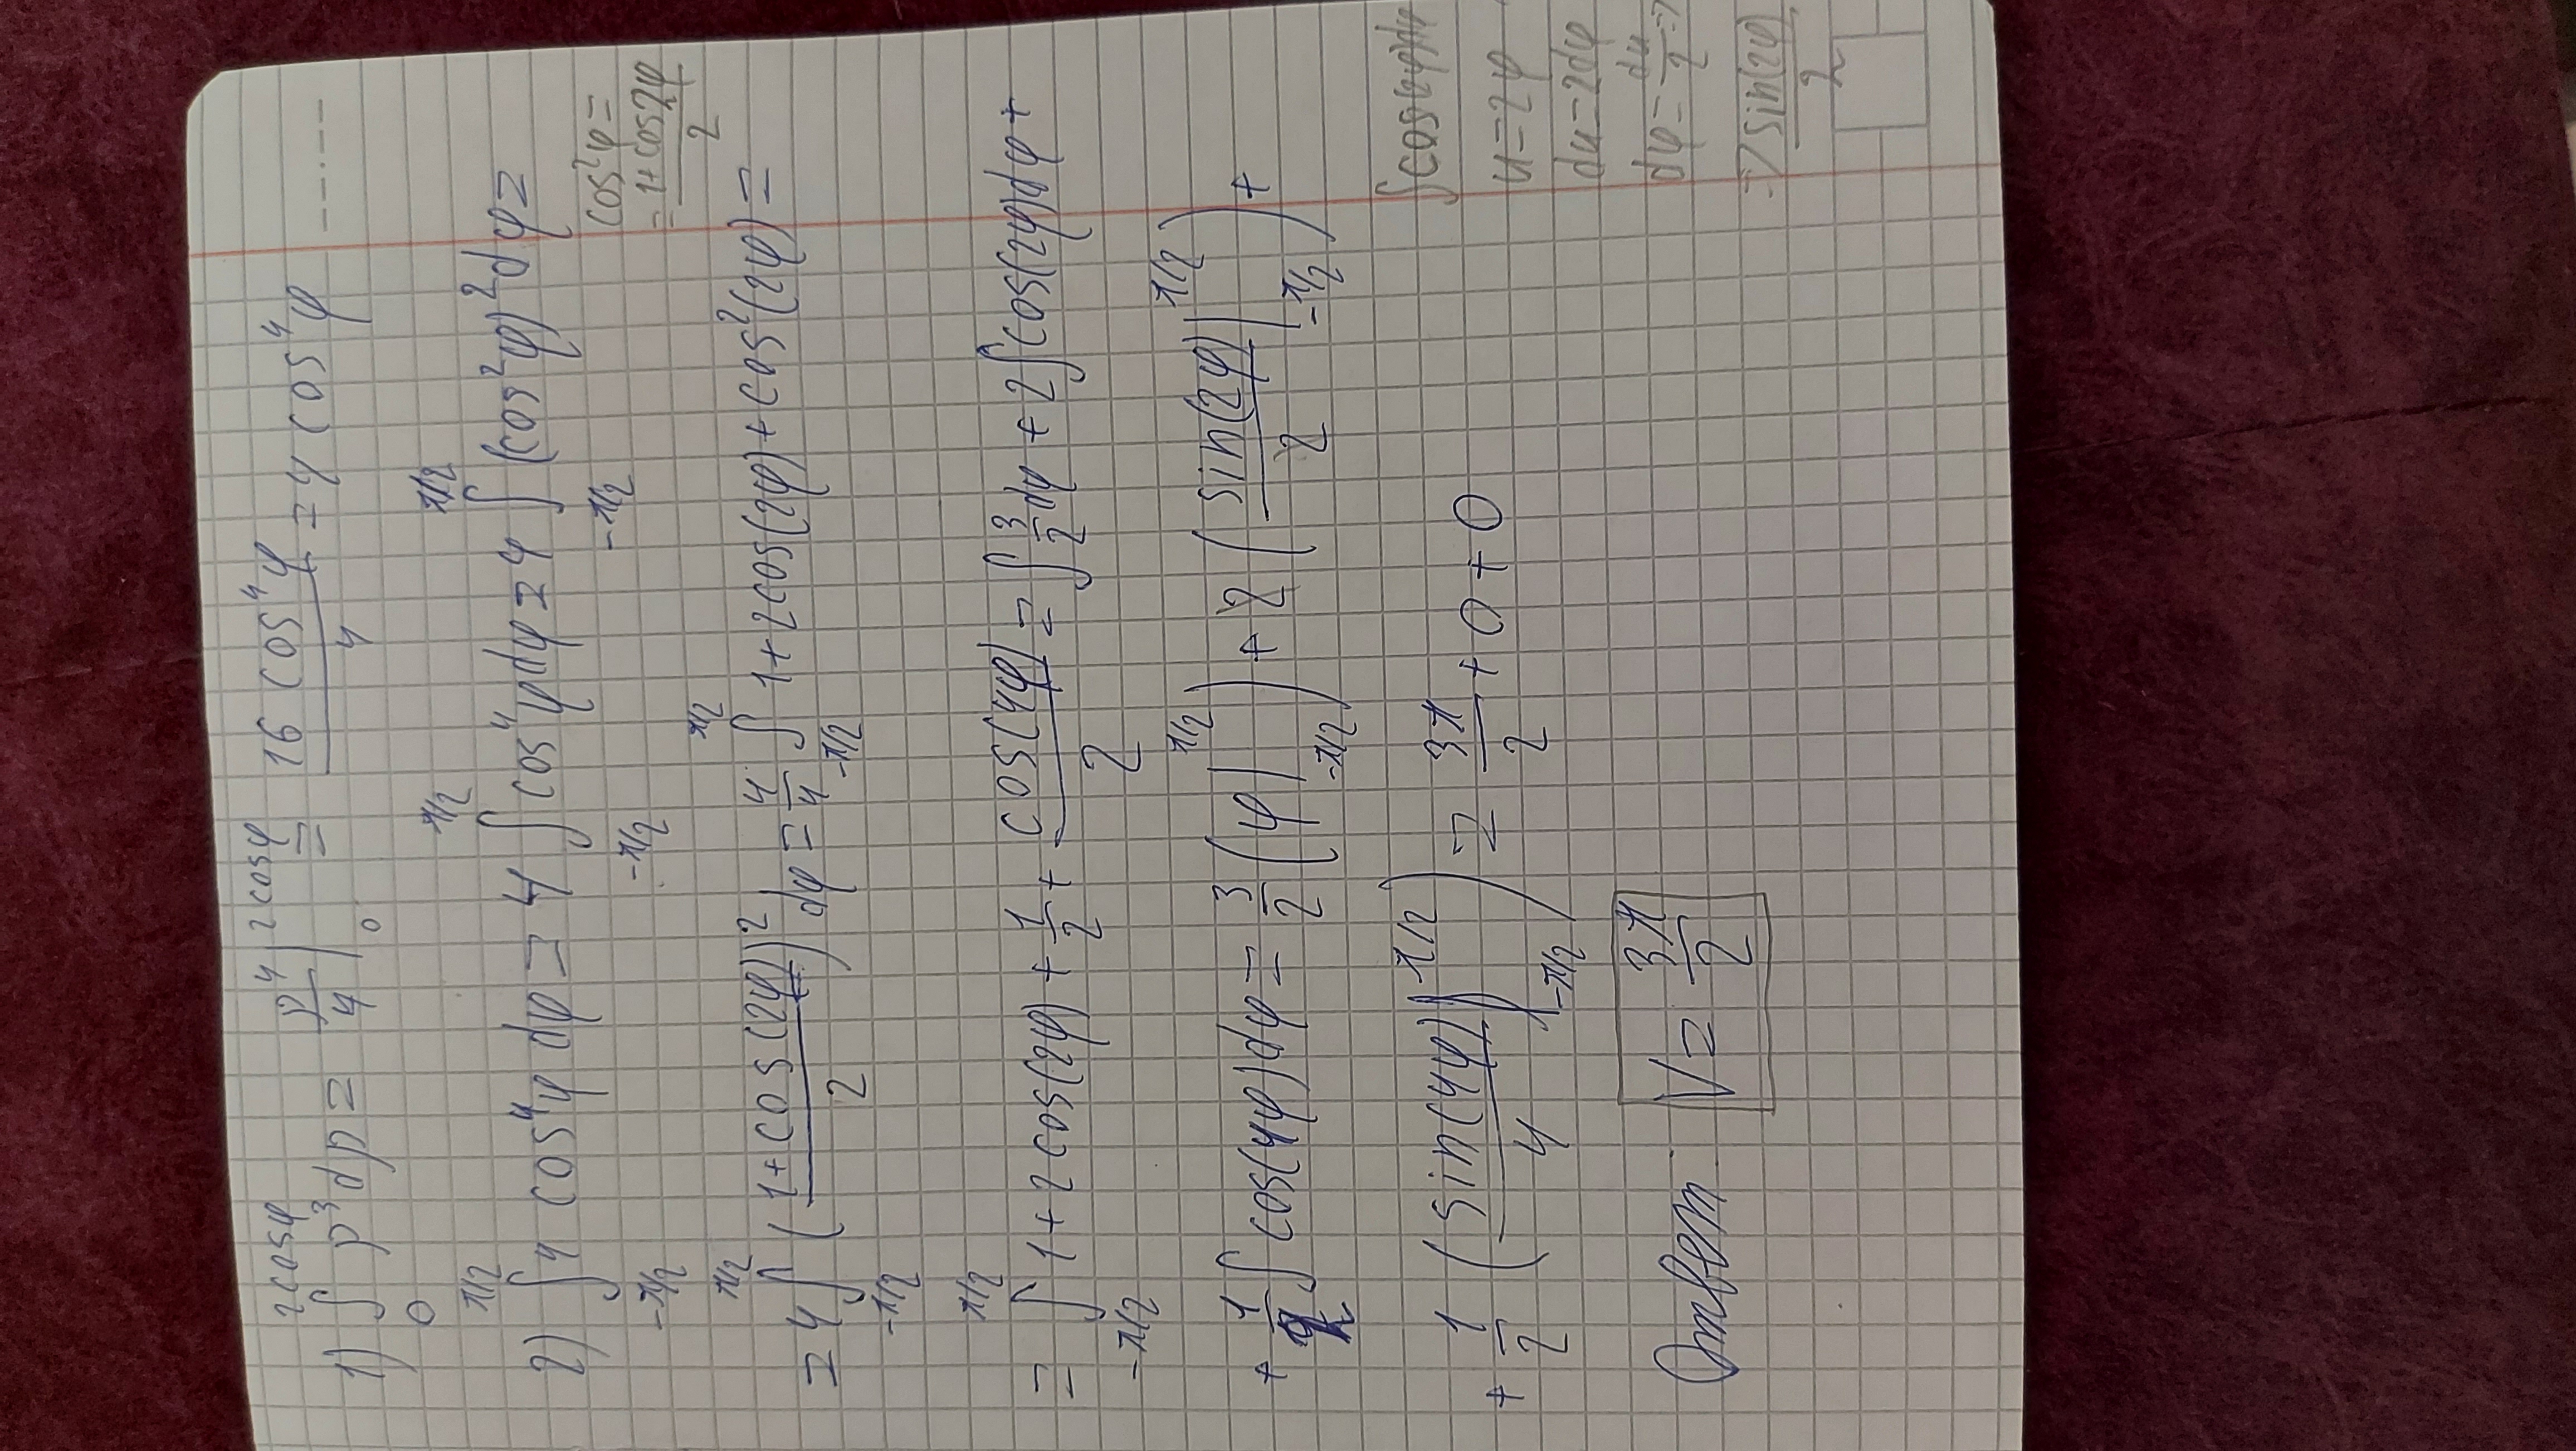 1) ∫₀^{2cosφ} ρ³dρ = ρ⁴/4 |₀^{2cosφ} = 16 cos⁴φ/4 = 4 cos⁴φ
2) ∫_{-π/2}^{π/2} 4 cos⁴φ dφ = 4 ∫_{-π/2}^{π/2} cos⁴φdφ = 4 ∫_{-π/2}^{π/2} (cos²φ)²dφ =
cos²φ =
= 1+cos2φ/2
= 4 ∫_{-π/2}^{π/2} (1+cos(2φ)/2)² dφ = 4/4 ∫_{-π/2}^{π/2} 1+2cos(2φ)+cos²(2φ) =
= ∫_{-π/2}^{π/2} 1+2cos(2φ) + 1/2 + cos(4φ)/2 = ∫ 3/2 dφ + 2∫cos(2φ)dφ +
+ 1/2 ∫ cos(4φ)dφ = 3/2 (φ|_{-π/2}^{π/2}) + 2 (sin(2φ)/2 |_{-π/2}^{π/2}) +
+ 1/2 (sin(4φ)/4 |_{-π/2}^{π/2}) = 3π/2 + 0 + 0
Ответ: V = 3π/2
∫cos(2φ)dφ
u=2φ
du=2dφ
dφ = du/2 =>
=> sin(2φ)/2